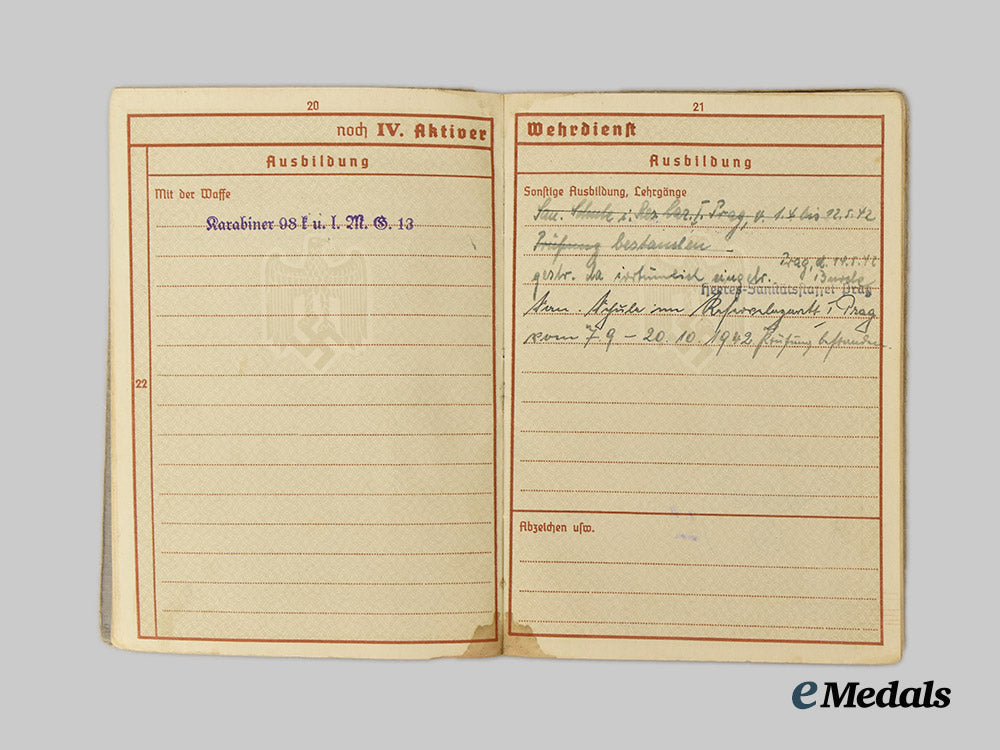 20
noch IV. Aktiver
Ausbildung
Mit der Waffe
Karabiner 98 k u. l. M. G. 13
22
21
Wehrdienst
Ausbildung
Sonstige Ausbildung, Lehrgänge
San. Schule i. Res. Laz. I Prag, v. 1.4 bis 12.5.42
Prüfung bestanden
Prag, d. 14.5.42
gestr. da irrtümlich eingetr.
Heeres-Sanitätsstaffel Prag
San. Schule im Reservelazarett I Prag
vom 7.9 – 20.10.1942 Prüfung bestanden.
Abzeichen usw.
eMedals